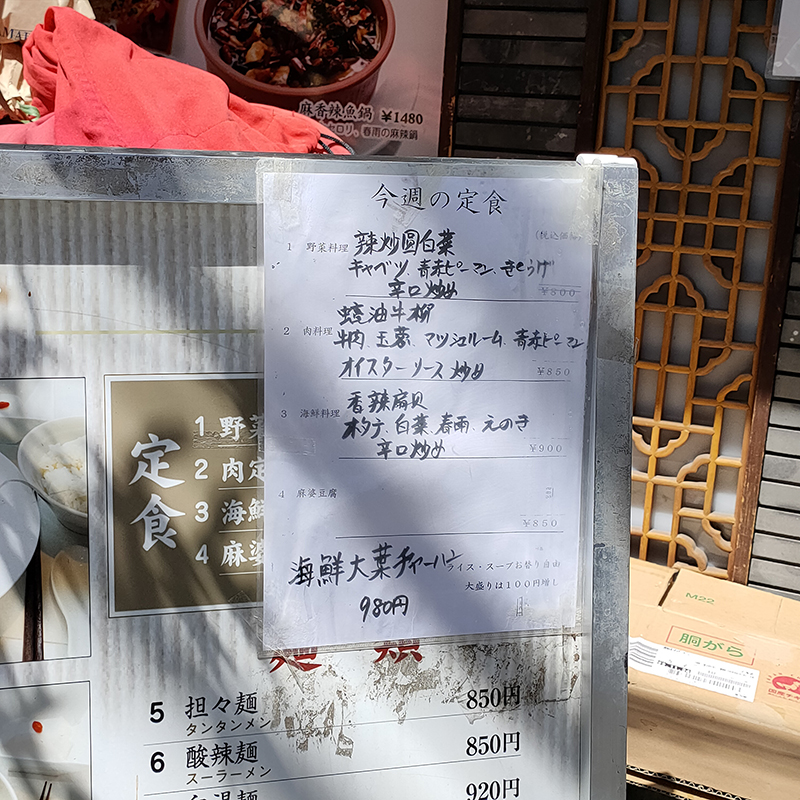 麻香辣魚鍋 ¥1480
セロリ。春雨の麻辣鍋
今週の定食
(税込価格)
1 野菜料理 辣炒圓白菜
キャベツ、青赤ピーマン、きくらげ
辛口炒め ¥800
2 肉料理 蠔油牛柳
牛肉、玉葱、マッシュルーム、青赤ピーマン
オイスターソース炒め ¥850
3 海鮮料理 香辣扇貝
ホタテ、白菜、春雨、えのき
辛口炒め ¥900
4 麻婆豆腐
¥850
海鮮大葉チャーハン
ライス・スープお替り自由
大盛りは100円増し
980円
定食
1 野菜
2 肉定
3 海鮮
4 麻婆
麺 類
5 担々麺 850円
タンタンメン
6 酸辣麺 850円
スーラーメン
920円
M22
胴がら